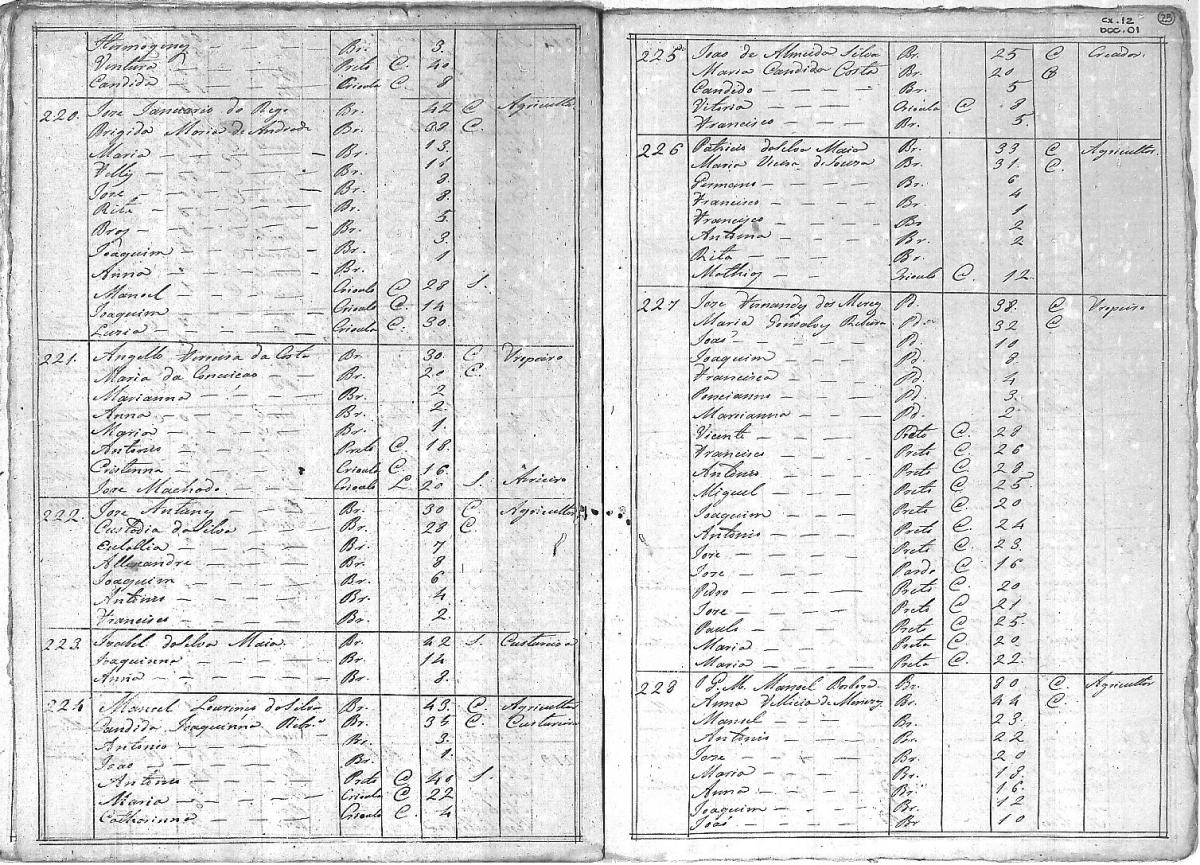 Hermogeney Br. 3.
Ventura Preto C. 40
Candida Crioula C. 8
220. Jose Januario do Rego Br. 42 C Agricultor
Brigida Maria de Andrade Br. 38 C.
Maria Br. 13
Felly Br. 11
Jose Br. 8
Rita Br. 8.
Broz Br. 5
Joaquim Br. 3.
Anna Br. 1
Manoel Crioulo C 28 S.
Joaquim Crioulo C. 14
Luzia Crioula C. 30.
221. Angello Ferreira da Costa Br. 30. C. Tropeiro
Maria da Conceicao Br. 20 C.
Marianna Br. 2
Anna Br. 2.
Maria Br. 1.
Antonio Preto C. 18.
Crioulo C. 16
Jose Machado Crioulo L. 20 S. Arrieiro
222. Jose Antony Br. 30 C. Agricultor
Custodia da Silva Br. 28 C.
Eulallia Br. 7
Allexandre Br. 8
Joaquim Br. 6
Antonio Br. 4.
Francisco Br. 2.
223. Izabel da Silva Maia Br. 42 S. Custureira
Joaquinna Br. 14
Anna Br. 8.
224. Manoel Lourenco da Silva Br. 43. C. Agricultor
Candida Joaquinna Br. 35 C. Custureira
Antonio Br. 3.
Joao Br. 1.
Antonio Preto C 40 S.
Maria Crioula C 22
Catharinna Crioula C. 4
cx.12
DOC.01
25
225 Joao de Almeida Silva Br. 25 C Creador.
Maria Candida Costa Br. 20 C
Candido Br. 5
Vitoria Crioula C 8
Francisco Br. 5.
226 Patricio da Silva Maia Br. 33 C Agricultor.
Maria Vieira de Souza Br. 31 C.
Germano Br. 6
Francisco Br. 4
Francisco Br 1
Antonna Br. 2
Rita Br. 2
Mathey Crioulo C 12.
227 Jose Fernandy dos Mercy Pd. 38. C Tropeiro
Maria Gonsalvy Pd. 32 C
Joao Pd. 10
Joaquim Pd. 8
Francisca Pd. 4
Ponciano Pd. 3
Marianna Pd. 2
Vicente Preto C. 28
Francisco Preto C. 26
Antonio Preto C. 28
Miguel Preto C. 25
Joaquim Preto C. 20
Antonio Preto C. 24
Jose Preto C 23.
Jose Pardo C 16
Pedro Preto C. 20
Jose Preto C 21
Paulo Preto C 25.
Maria Preta C 20
Maria Preta C. 22.
228 Manoel Br. 80 C Agricultor
Anna Fellicia de Menezy Br. 44 C.
Manoel Br. 23.
Antonio Br. 22
Jose Br. 20
Maria Br. 18
Anna Br. 16.
Joaquim Br. 12
Joao Br 10